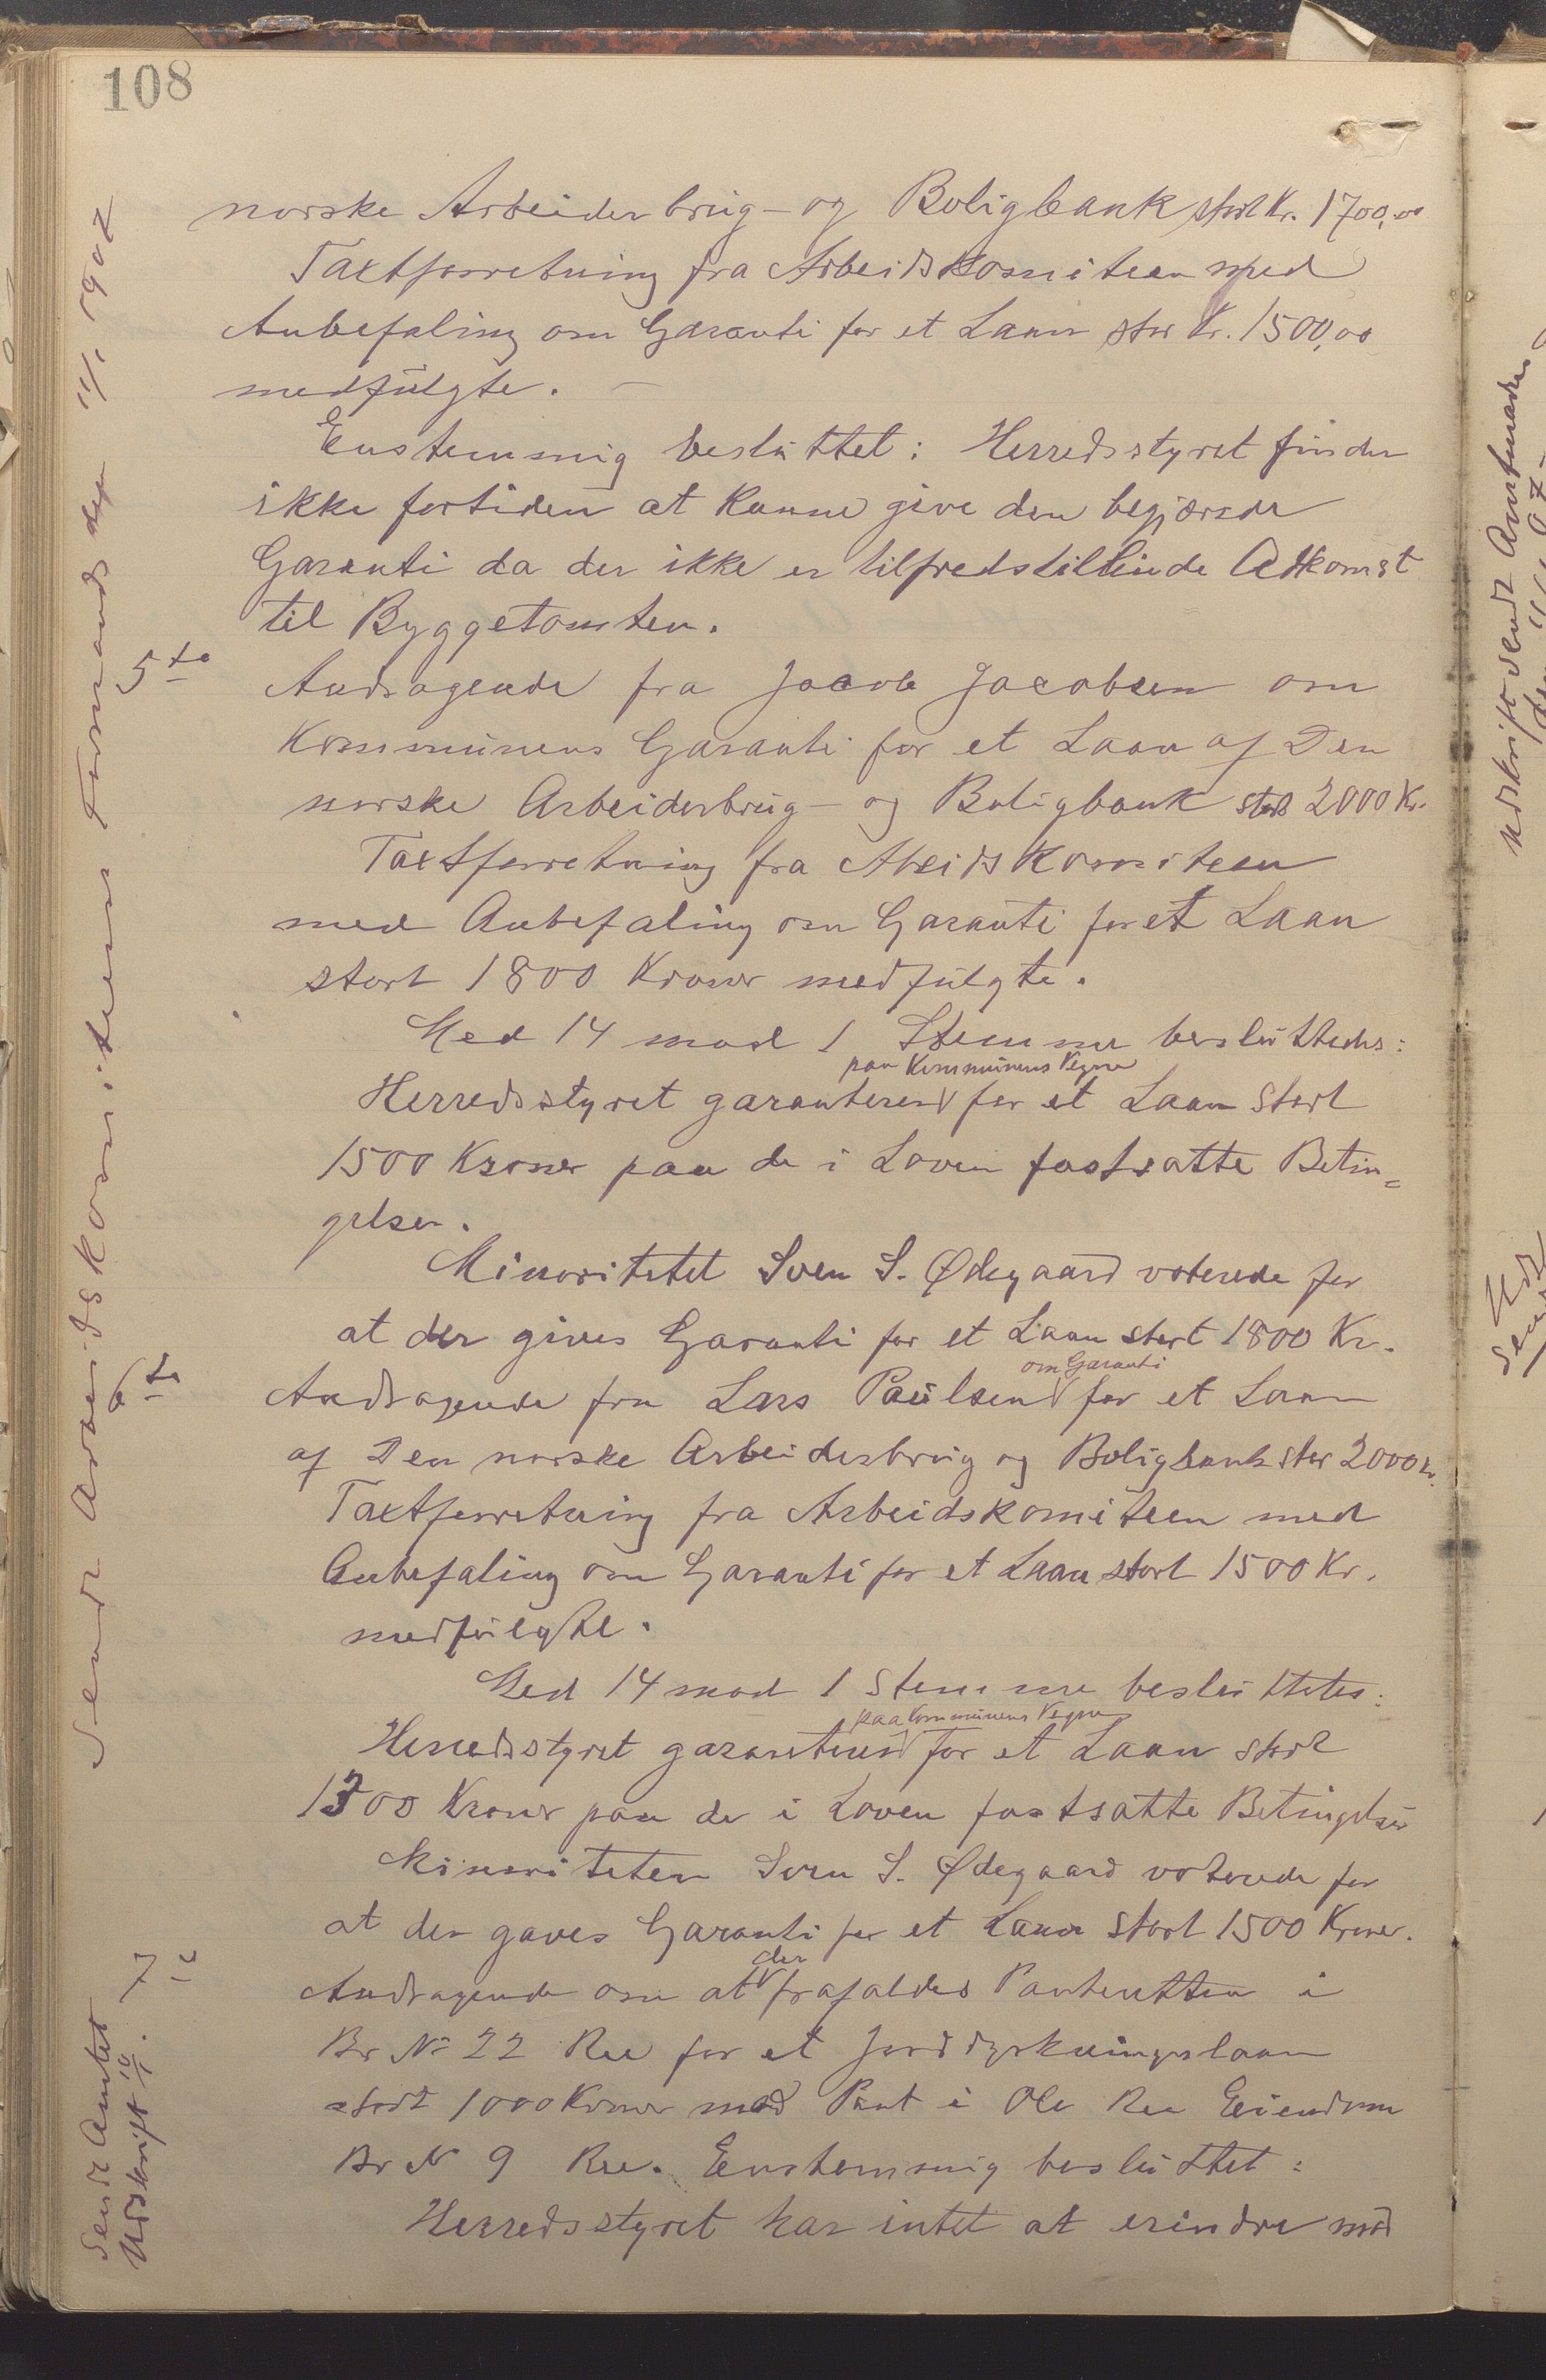 108
norske Arbeiderbrug- og Boligbank stort Kr. 1700,00
Taxtforretning fra Arbeidskomiteen med
Anbefaling om Garanti for et Laan stor Kr. 1500,00
medfulgte. —
Enstemmig besluttet: Herredsstyret finder
ikke fortiden at kunne give den begjærede
Garanti da der ikke er tilfredstillende Adkomst
til Byggetomten.
5te Andragende fra Jacob Jacobsen om
Kommunens Garanti for et Laan af Den
norske Arbeiderbrug- og Boligbank stort 2000 Kr.
Taxtforretning fra Abeidskomiteen
med Anbefaling om Garanti for et Laan
stort 1800 Kroner medfulgte.
Med 14 mod 1 Stemme besluttedes:
paa Kommunens Vegne
Herredsstyret garanterer for et Laan stort
1500 Kroner paa de i Loven fastsatte Betin=
gelser.
Minoritetet Sven S. Ødegaard voterede for
at der gives Garanti for et Laan stort 1800 Kr.
om Garanti
6te Andragende fra Lars Paulsen for et Laan
af Den norske Arbeiderbrug og Boligbank stor 2000 Kr.
Taxtforretning fra Arbeidskomiteen med
Anbefaling om Garanti for et Laan stort 1500 Kr.
medfulgte.
Med 14 mod 1 Stemme besluttetes:
paa Kommunens Vegne
Herredsstyret garanterer for et Laan stort
1300 Kroner paa de i Loven fastsatte Betingelser
Minoriteten Sven S. Ødegaard voterede for
at der gaves Garanti for et Laan stort 1500 Kroner.
der
7de Andragende om at frafaldes Panteretten i
Br No 22 Ree for et Jorddyrkningslaan
stort 1000 Kroner mod Pant i Ole Ree Eiendom
Br N 9 Ree. Enstemmig besluttet:
Herredsstyret har intet at erindre mod
Sendt Arbeidskomiteens Formand den 11/1 1902
Sendt Amtet
Udskrift 10/1.
Udskrift sendt Amtmanden